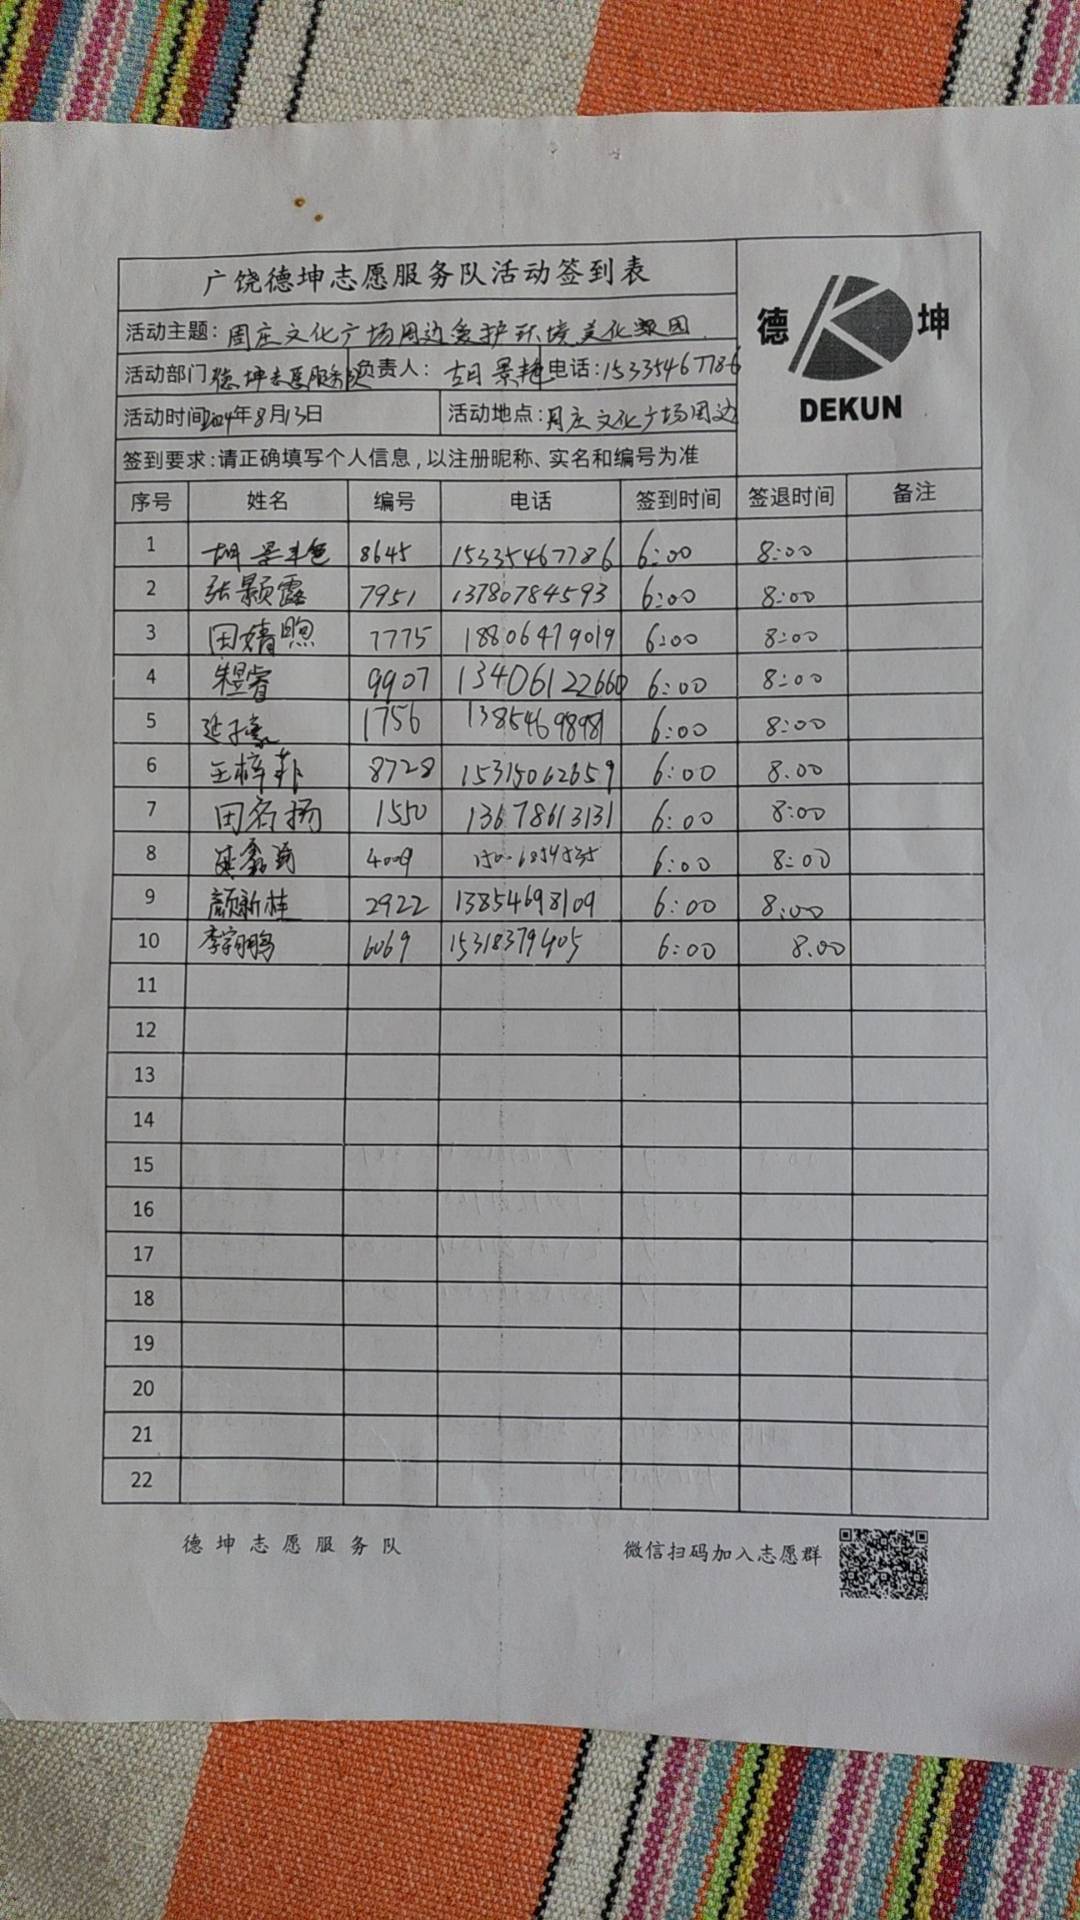 广饶德坤志愿服务队活动签到表
德 坤
DEKUN
活动主题：周庄文化广场周边爱护环境美化家园.
活动部门 德坤志愿服务队 负责人：胡景艳 电话：15335467786
活动时间 2024年8月13日 活动地点：周庄文化广场周边
签到要求：请正确填写个人信息，以注册昵称、实名和编号为准
序号 姓名 编号 电话 签到时间 签退时间 备注
1 胡景艳 8645 15335467786 6:00 8:00
2 张颢露 7951 13780784593 6:00 8:00
3 田婧煦 7775 18806479019 6:00 8:00
4 朱昱睿 9907 13406122660 6:00 8:00
5 延子豪 1756 13854698981 6:00 8:00
6 王梓菲 8728 15315062659 6:00 8.00
7 田名扬 1550 13678613131 6:00 8:00
8 4009 6:00 8:00
9 颜新桂 2922 13854698109 6:00 8:00
10 李宗鹏 6069 15318379405 6:00 8.00
11
12
13
14
15
16
17
18
19
20
21
22
德坤志愿服务队 微信扫码加入志愿群